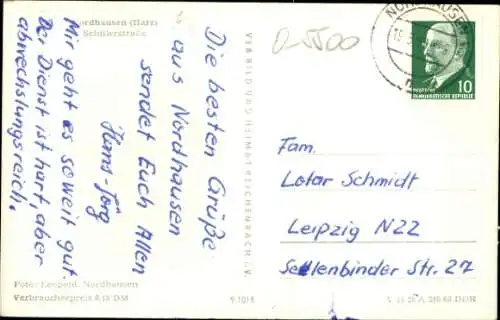 Nordhausen (Harz)
Schillerstraße
Die besten Grüße
aus Nordhausen
sendet Euch Allen
Hans-Jörg
Mir geht es soweit gut.
Der Dienst ist hart, aber
abwechslungsreich.
Foto: Leopold, Nordhausen
Verbraucherpreis 0,15 DM
VEB BILD UND HEIMAT REICHENBACH I. V.
9.1015
D-5500
NORDHAUSEN
DEUTSCHE
DEMOKRATISCHE REPUBLIK
10
Fam.
Lotar Schmidt
Leipzig N22
Sellenbinder Str. 27
DDR